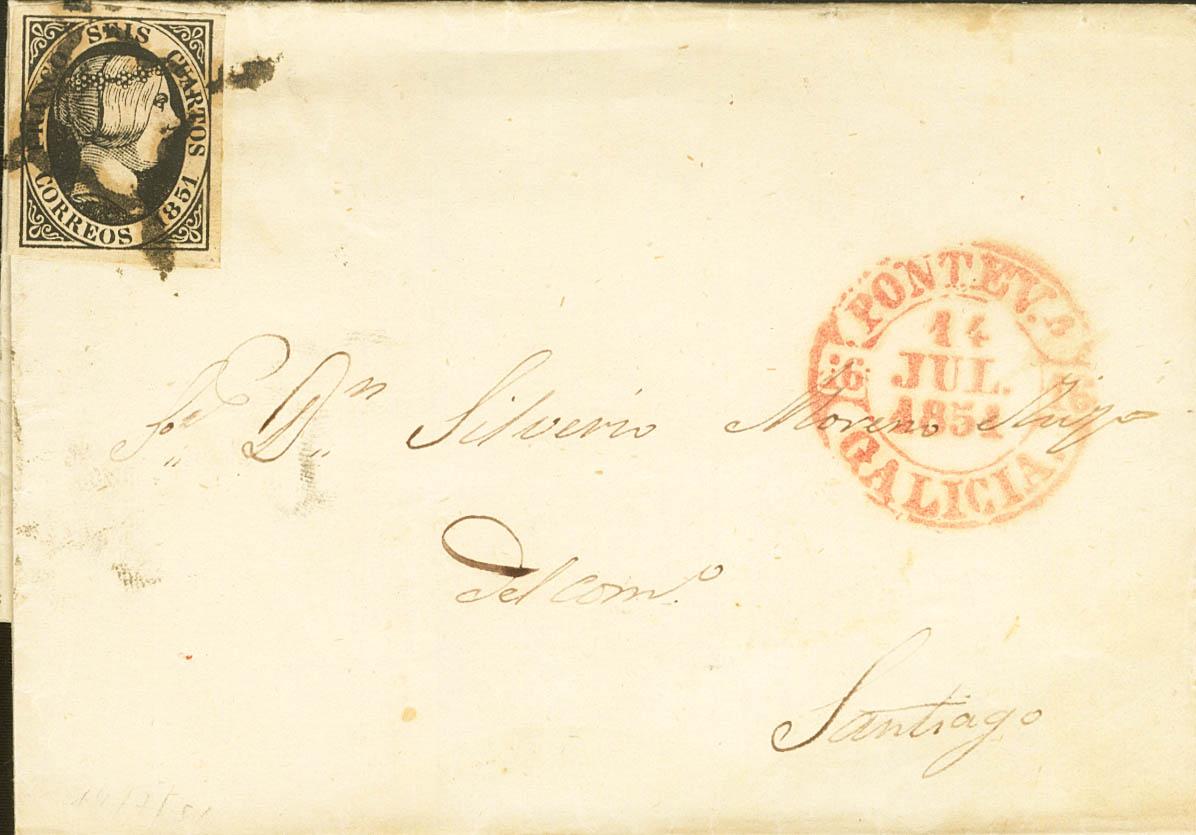 FRANCO SEIS CUARTOS
CORREOS 1851
PONTEV.A
14
JUL.
1851
16 16
GALICIA
S.r D.n Silverio Moreno
del com.o
Santiago
14/7/51